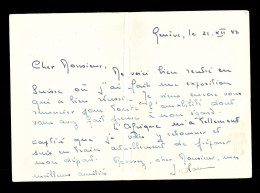 Genève, le 21. XII 47
Cher Monsieur, Me voici bien rentré en
Suisse où j'ai fait une exposition
qui a bien réussi. Je viens encore vous
remercier pour toute l'amabilité dont
vous avez fait preuve à mon égard.
L'Afrique m'a tellement
captivé que j'ai y retourner et
suis en train actuellement de préparer
mon départ. Recevez, cher Monsieur, mes
meilleures amitiés